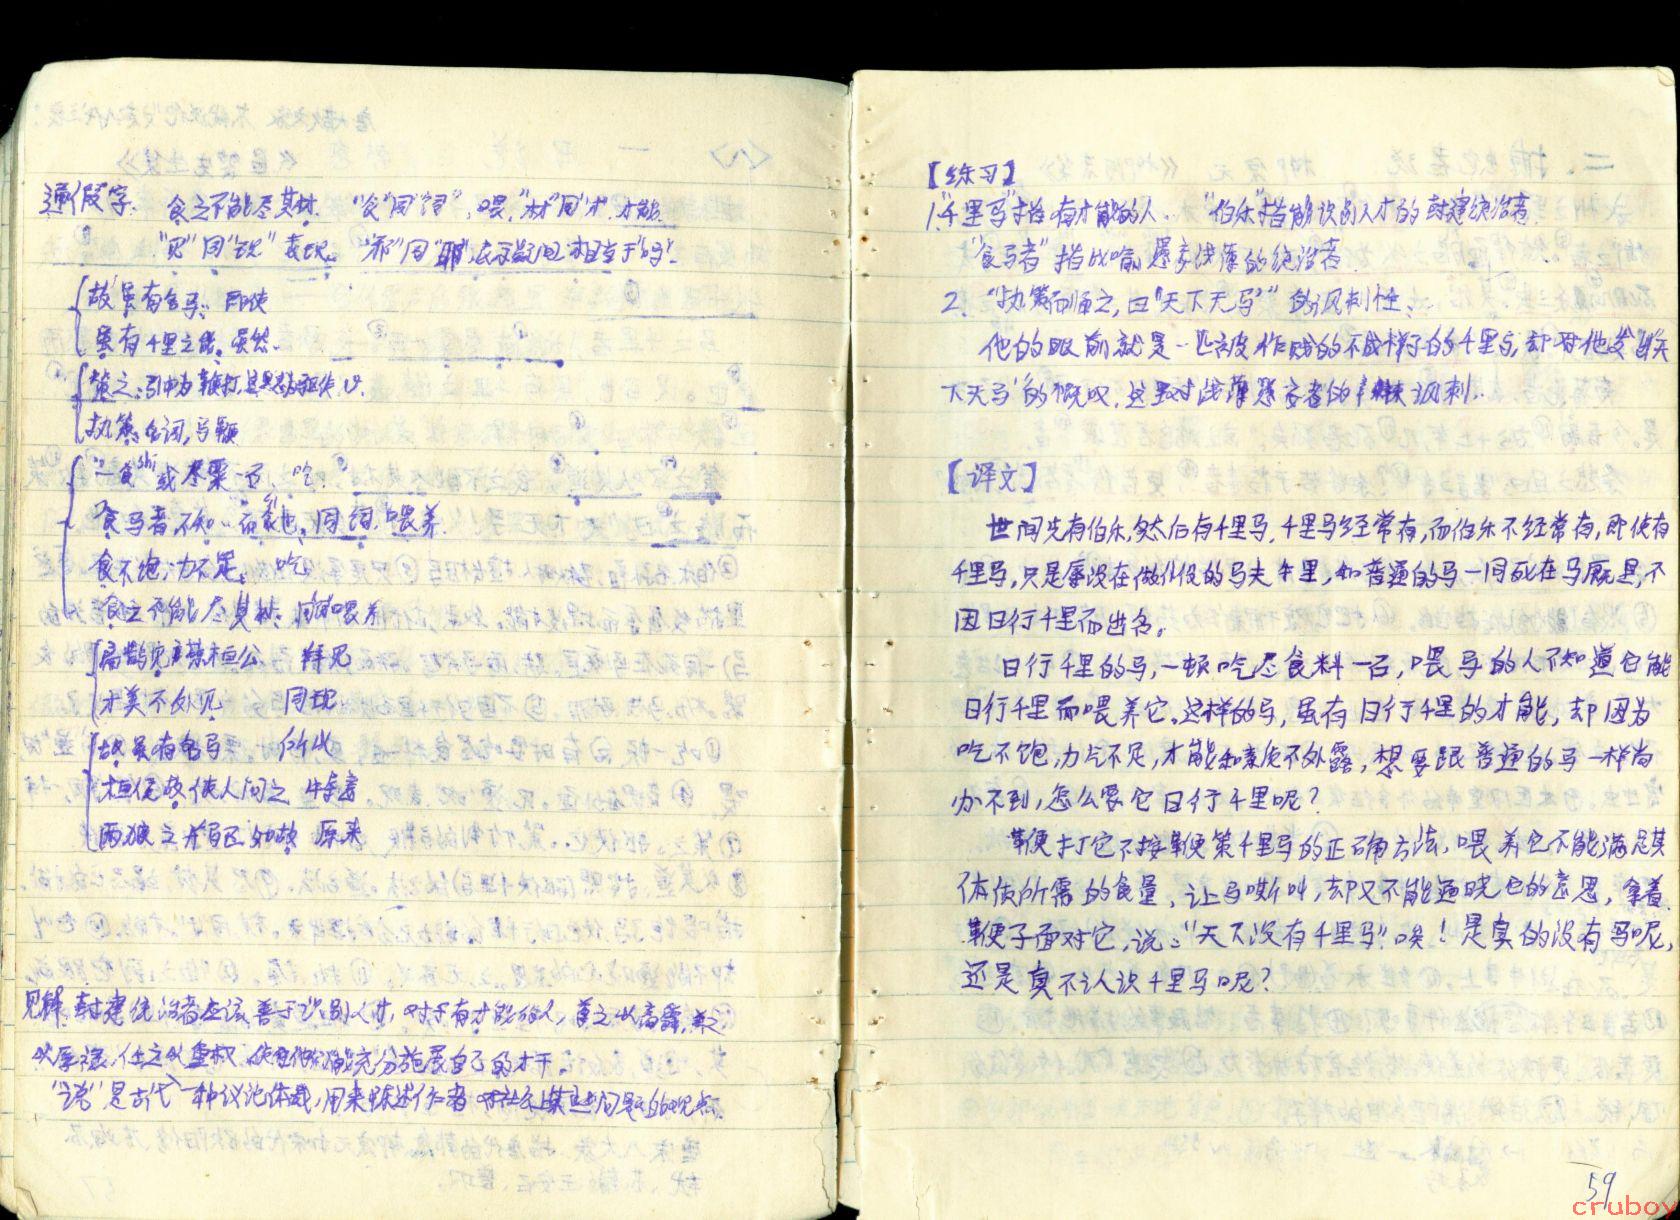 通假字: 食之不能尽其材. "食"同"饲", 喂, "材"同"才", 才能.
"见"同"现" 表现. "邪"同"耶", 表示疑问 相当于"吗".
故虽有名马: 即使
虽有千里之能. 虽然.
策之: 引申为鞭打,
执策: 名词, 马鞭
一食shí或尽粟一石, 吃.
食马者, 不知…而食sì也, 同饲. 喂养.
食不饱, 力不足, 吃
食之不能尽其材: 同饲喂养
扁鹊见蔡桓公 拜见
才美不外见 同现
故虽有名马 所以
桓侯故使人问之 特意
两狼之并驱如故 原来
见解: 封建统治者应该善于识别人才, 对于有才能的人, 尊之以高爵, 养之
以厚禄, 任之以重权, 使他们能充分施展自己的才干.
"说"是古代一种议论体裁, 用来陈述作者对社会上某些问题的观点.
【练习】
1. "千里马"指有才能的人. "伯乐"指能识别人才的封建统治者.
"食马者"指 愚妄浅薄的统治者.
2. "执策而临之, 曰'天下无马'"的讽刺性:
他的眼前就是一匹被作贱的不成样子的千里马, 却对他发出"天
下无马"的慨叹, 这是对浅薄愚妄者的 讽刺.
【译文】
世间先有伯乐, 然后有千里马, 千里马经常有, 而伯乐不经常有, 即使有
千里马, 只是辱没在做仆役的马夫手里, 和普通的马一同死在马厩里, 不
因日行千里而出名。
日行千里的马, 一顿吃尽食料一石, 喂马的人不知道它能
日行千里而喂养它. 这样的马, 虽有日行千里的才能, 却因为
吃不饱, 力气不足, 才能和素质不外露, 想要跟普通的马一样尚
办不到, 怎么要它日行千里呢?
鞭打它不按鞭策千里马的正确方法, 喂养它不能满足其
体质所需的食量, 让马嘶叫, 却又不能通晓它的意思, 拿着
鞭子面对它, 说: "天下没有千里马"唉! 是真的没有马呢,
还是真不认识千里马呢?
59
cruboy